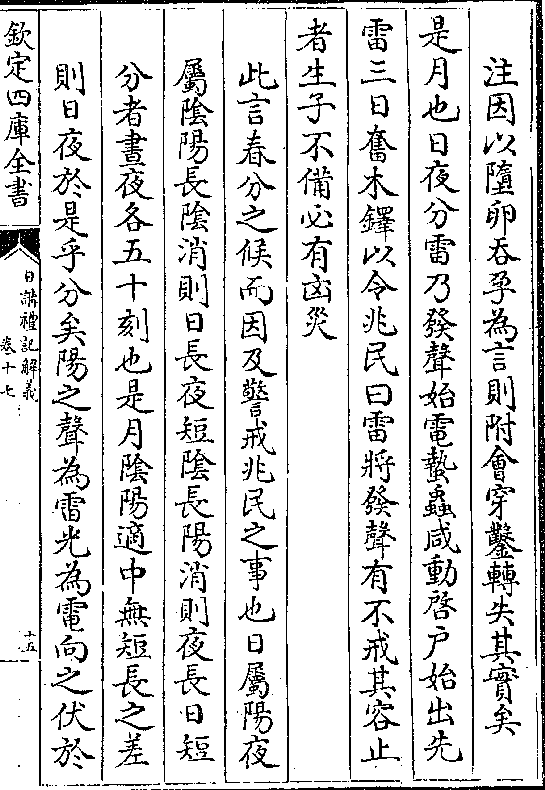 注因以墮卵吞孕為言則附會穿鑿轉失其實矣
是月也日夜分雷乃發聲始電蟄蟲咸動啓户始出先
雷三日奮木鐸以令兆民曰雷將發聲有不戒其容止
者生子不備必有凶災
此言春分之候而因及警戒兆民之事也日屬陽夜
屬陰陽長陰消則日長夜短陰長陽消則夜長日短
分者晝夜各五十刻也是月陰陽適中無短長之差
則日夜於是乎分矣陽之聲為雷光為電向之伏於
欽定四庫全書
日講禮記解義
卷十七
十五